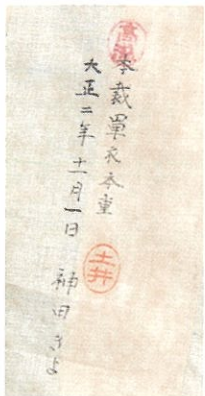 本裁單衣本重
大正二年十一月一日
土井
神田きよ